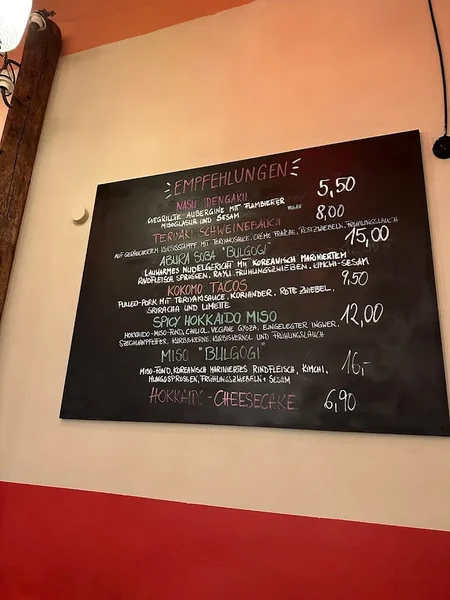 EMPFEHLUNGEN
NASU DENGAKU 5,50
GEGRILLTE AUBERGINE MIT FLAMBIERTER
MISOGLASUR UND SESAM VEGAN 8,00
TERIYAKI SCHWEINEBAUCH
MIT TERIYAKISAUCE, CRÈME FRAÎCHE, RÖSTZWIEBELN, FRÜHLINGSLAUCH
ABURA SOBA "BULGOGI" 15,00
LAUWARMES NUDELGERICHT MIT KOREANISCH MARINIERTEM
RINDFLEISCH, SPROSSEN, RAYU, FRÜHLINGSZWIEBELN, KIMCHI-SESAM
KOKOMO TACOS 9,50
PULLED-PORK MIT TERIYAKISAUCE, KORIANDER, ROTE ZWIEBEL,
SRIRACHA UND LIMETTE
SPICY HOKKAIDO MISO 12,00
HOKKAIDO-MISO-FOND, CHILIÖL, VEGANE GYOZA, EINGELEGTER INGWER,
SZECHUANPFEFFER, KÜRBISKERNE, KÜRBISKERNÖL UND FRÜHLINGSLAUCH
MISO "BULGOGI" 16,-
MISO-FOND, KOREANISCH MARINIERTES RINDFLEISCH, KIMCHI,
MUNGOSPROSSEN, FRÜHLINGSZWIEBELN + SESAM
HOKKAIDO-CHEESECAKE 6,90